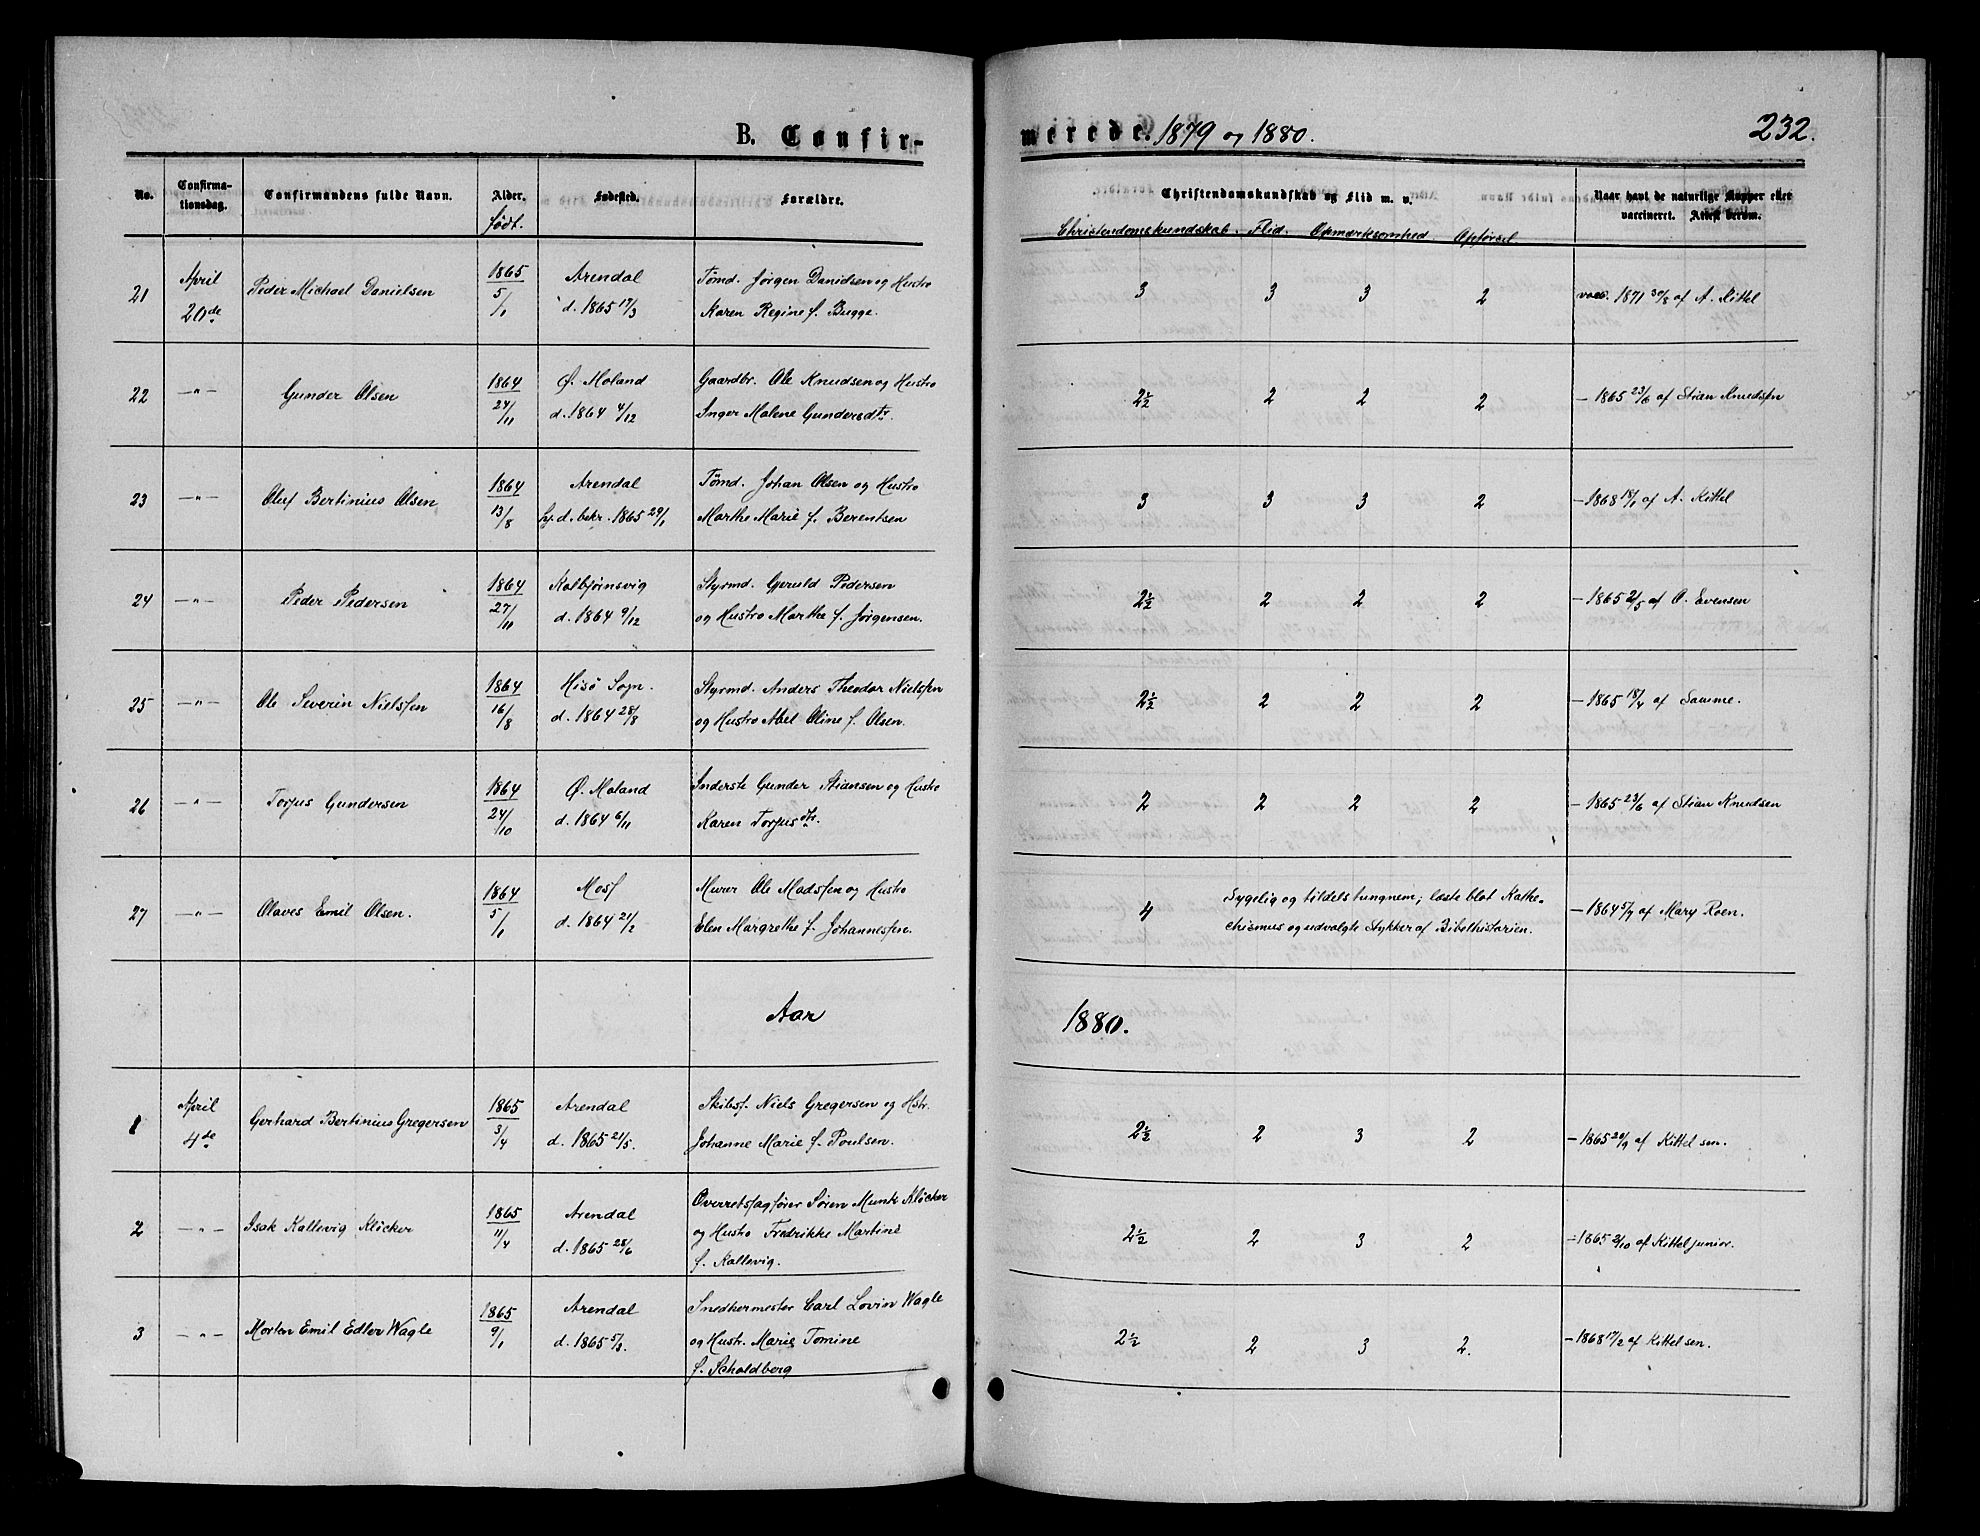 B. Confir-
merede. 1879 og 1880.
232.
No.
Confirma-
tionsdag.
Confirmandens fulde Navn.
Alder.
født.
Fødested.
Forældre.
Christendomskundskab og Flid m. v.
Christendomskundskab. Flid. Opmærksomhed. Opførsel
Naar havt de naturlige Kopper eller
vaccineret. Attest derom.
21 April 20de Peder Michael Danielsen 1865 5/1 Arendal
d. 1865 17/3
Tømd. Jørgen Danielsen og Hustro
Karen Regine f. Bugge.
3 3 3 2 vacc. 1871 30/8 af A. Kittel
22 —"— Gunder Olsen 1864 24/11 Ø. Moland
d. 1864 4/12
Gaardbr. Ole Knudsen og Hustro
Inger Malene Gundersdtr.
2½ 2 2 2 — 1865 23/6 af Stian Knudsen
23 —"— Oluf Bertinius Olsen 1864 13/8 Arendal
hj.d. bekr. 1865 29/1
Tømd. Johan Olsen og Hustro
Marthe Marie f. Berentsen
3 3 3 2 — 1868 18/1 af A. Kittel
24 —"— Peder Pedersen 1864 27/11 Kolbjørnsvig
d. 1864 9/12
Styrmd. Gjeruld Pedersen
og Hustro Marthe f. Jørgensen.
2½ 2 2 2 — 1865 2/5 af O. Evensen
25 —"— Ole Severin Nielsen 1864 16/8 Hisø Sogn.
d. 1864 28/8
Styrmd. Anders Theodor Nielsen
og Hustro Abel Oline f. Olsen.
2½ 2 2 2 — 1865 18/4 af Samme.
26 —"— Torjus Gundersen 1864 24/10 Ø. Moland
d. 1864 6/11
Inderste Gunder Stiansen og Hustro
Karen Torjusdtr.
2 2 2 2 — 1865 23/6 af Stian Knudsen
27 —"— Olaves Emil Olsen. 1864 5/1 Moss
d. 1864 21/2
Murer Ole Madsen og Hustro
Elen Margrethe f. Johannesen.
4 Sygelig og tildels tungnem; læste blot Kathe-
chismus og udvalgte Stykker af Bibelhistorien.
— 1864 5/7 af Mary Roen.
Aar 1880.
1 April 4de Gerhard Bertinius Gregersen 1865 3/4 Arendal
d. 1865 21/5.
Skibsf. Niels Gregersen og Hstr.
Johanne Marie f. Poulsen.
2½ 2 3 2 — 1865 20/9 af Kittel sen.
2 —"— Isak Kallevig Kløcker 1865 11/4 Arendal
d. 1865 28/6
Overretssagfører Søren Munk Kløcker
og Hustro Fredrikke Martine
f. Kallevig.
2½ 2 3 2 — 1865 2/10 af Kittel junior.
3 —"— Morten Emil Edler Wagle 1865 9/1 Arendal
d. 1865 5/3.
Snedkermester Carl Lovin Wagle
og Hustr. Marie Tomine
f. Scholdberg
2½ 2 3 2. — 1868 17/2 af Kittel sen.